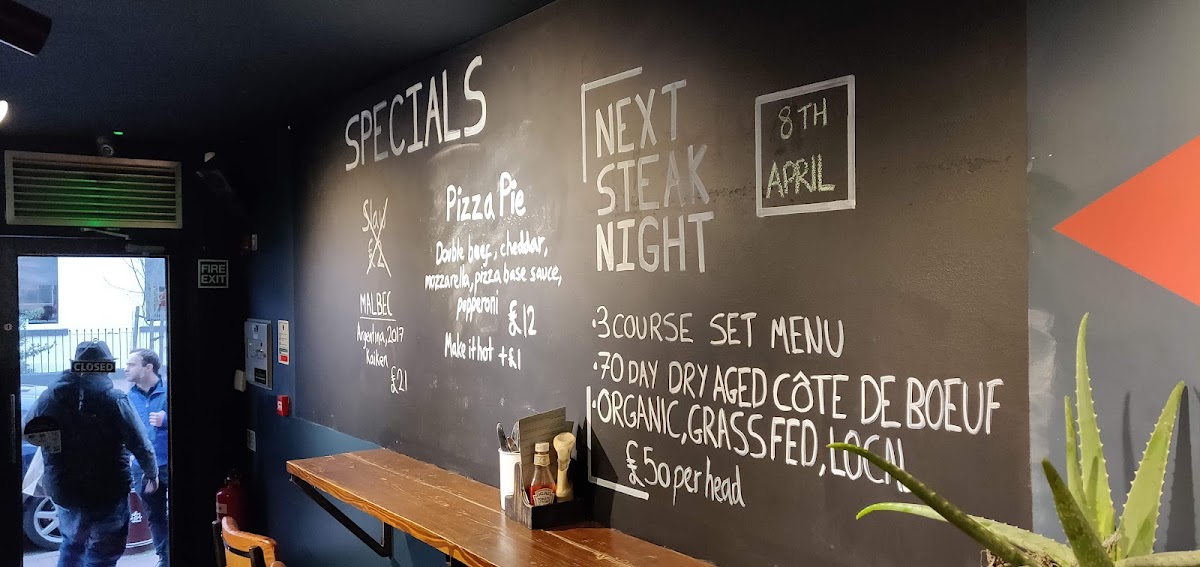 SPECIALS
Slaw
£2
MALBEC
Argentina, 2017
Kaiken
£21
Pizza Pie
Double beef, cheddar,
mozzarella, pizza base sauce,
pepperoni £12
Make it hot +£1
NEXT
STEAK
NIGHT
8TH
APRIL
·3 COURSE SET MENU
·70 DAY DRY AGED CÔTE DE BOEUF
·ORGANIC, GRASS FED, LOCAL
£50 per head
FIRE
EXIT
CLOSED
HEINZ